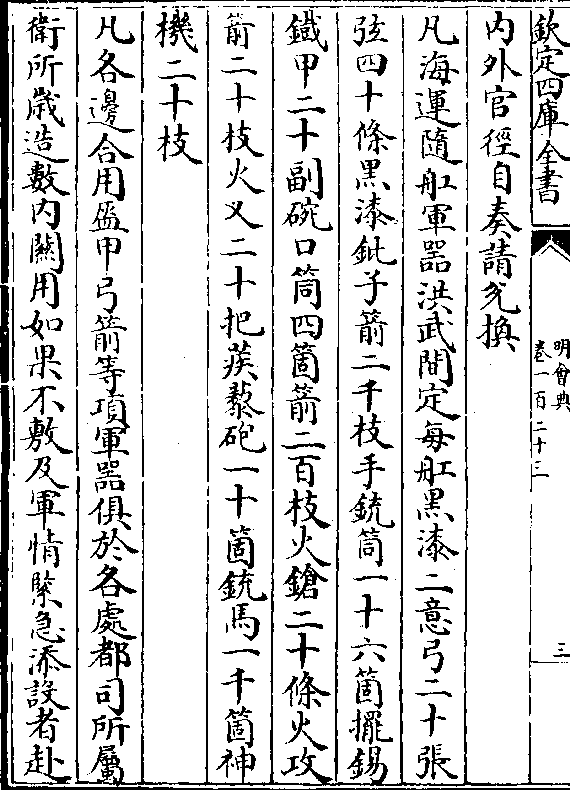 欽定四庫全書
明會典
卷一百二十三
三
內外官徑自奏請兌換
凡海運隨舡軍器洪武間定每舡黑漆二意弓二十張
弦四十條黑漆鈚子箭二千枝手銃筒一十六箇擺錫
鐵甲二十副碗口筒四箇箭二百枝火鎗二十條火攻
箭二十枝火叉二十把蒺藜砲一十箇銃馬一千箇神
機二十枝
凡各邊合用盔甲弓箭等項軍器俱於各處都司所屬
衛所歲造數內關用如果不敷及軍情緊急添設者赴